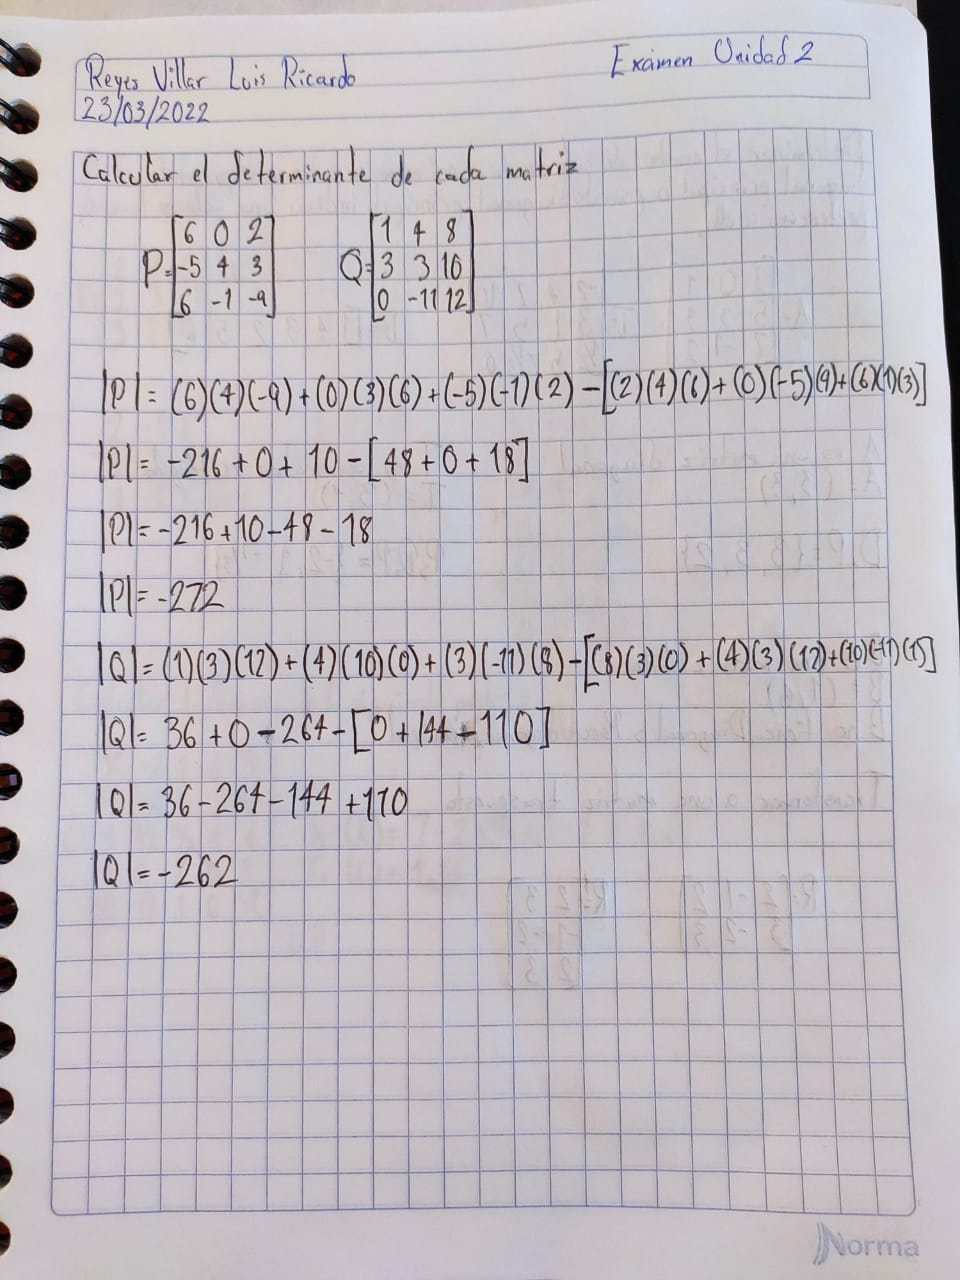 Reyes Villar Luis Ricardo
Exámen Unidad 2
23/03/2022
Calcular el determinante de cada matriz
P=[6 0 2 Q=[1 4 8
-5 4 3 3 3 10
6 -1 -9] 0 -11 12]
|P|= (6)(4)(-9)+(0)(3)(6)+(-5)(-1)(2)-[(2)(4)(6)+(0)(-5)(9)+(6)(1)(3)]
|P|= -216+0+10-[48+0+18]
|P|= -216+10-48-18
|P|= -272
|Q|= (1)(3)(12)+(4)(10)(0)+(3)(-11)(8)-[(8)(3)(0)+(4)(3)(12)+(10)(-11)(1)]
|Q|= 36+0-264-[0+144-110]
|Q|= 36-264-144+110
|Q|=-262
Norma